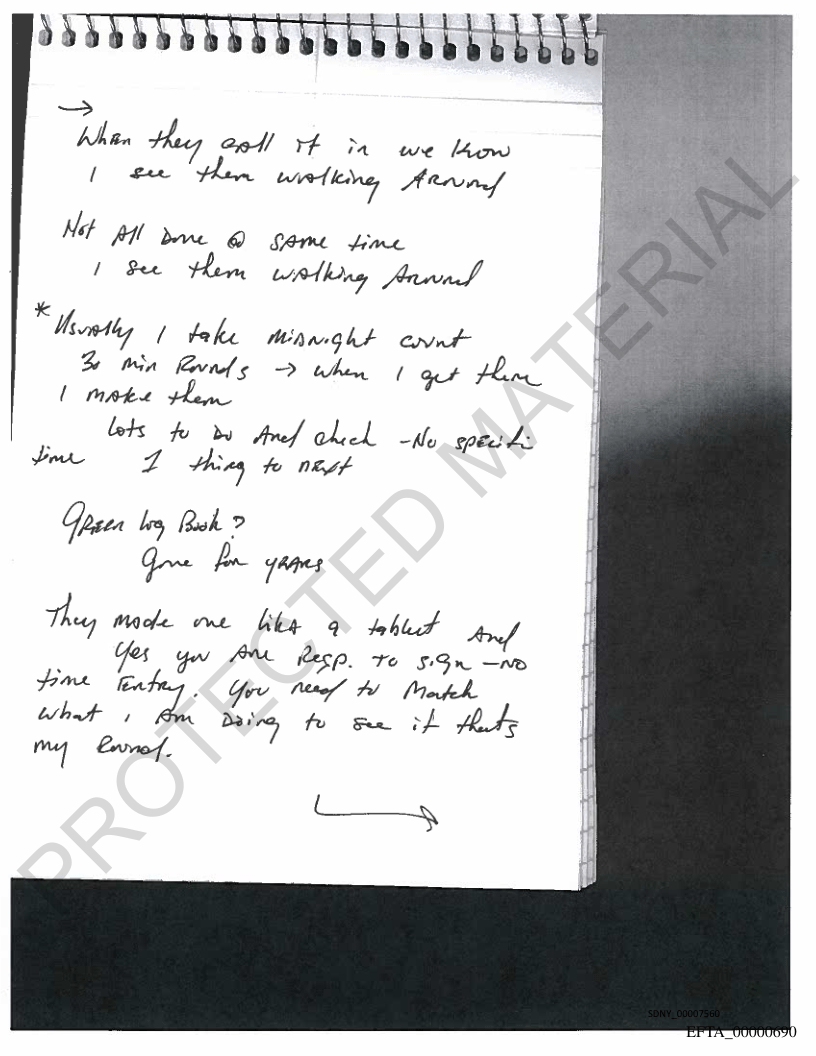 →
When they call it in we know
I see them walking Around
Not All Done @ SAME time
I see them walking Around
* Usually I take MIDNIGHT count
30 min Rounds → when I get there
I make them
Lots to DO And check - No specific
time 1 thing to next
Green log Book?
Gone for YEARS
They made one like a tablet And
Yes you are Resp. to sign - NO
time Entry. You need to Match
what I Am Doing to see if thats
my Round.
PROTECTED MATERIAL
SDNY_00007560
EFTA_00000690